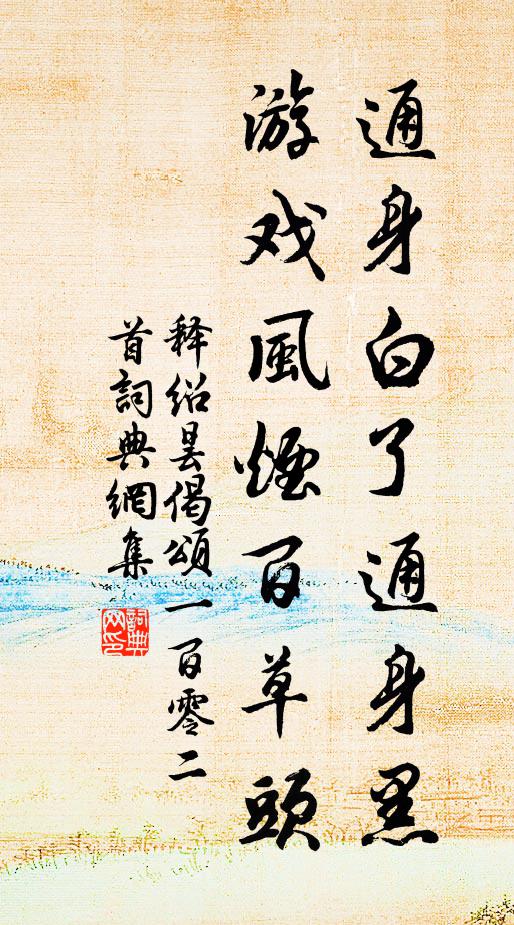 通身白了通身黑
游戏風煙百草頭
释绍昙偈頌一百零二
首詞典網集
詞典网印